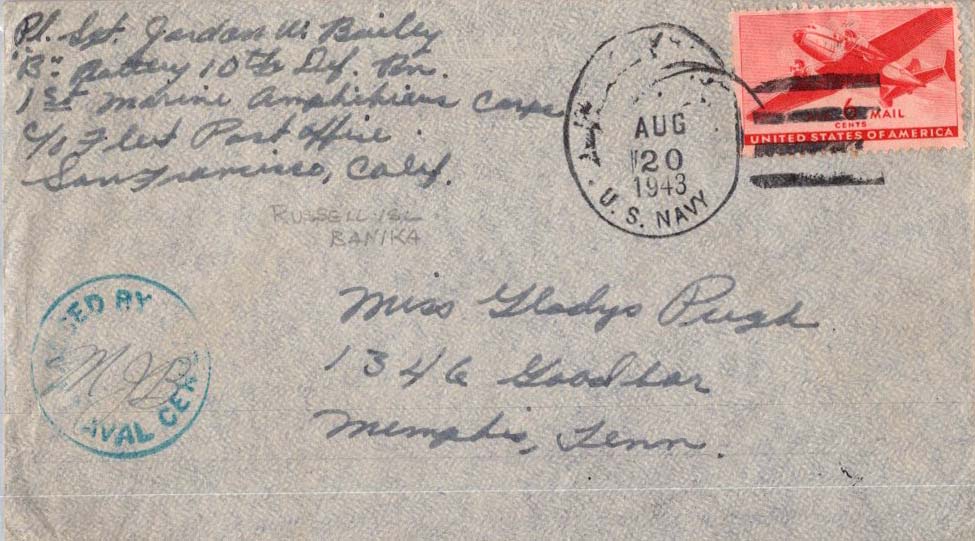 Pl. Sgt. Jordan W. Bailey
"B" Battery 10th Def. Bn.
1st Marine Amphibious Corps
c/o Fleet Post Office
San Francisco, Calif.
RUSSELL ISL
BANIKA
AUG
20
1943
U. S. NAVY
6
CENTS
MAIL
UNITED STATES OF AMERICA
SED BY
NAVAL CEN
MJB
Miss Gladys Pugh
1346 Goodbar
Memphis, Tenn.